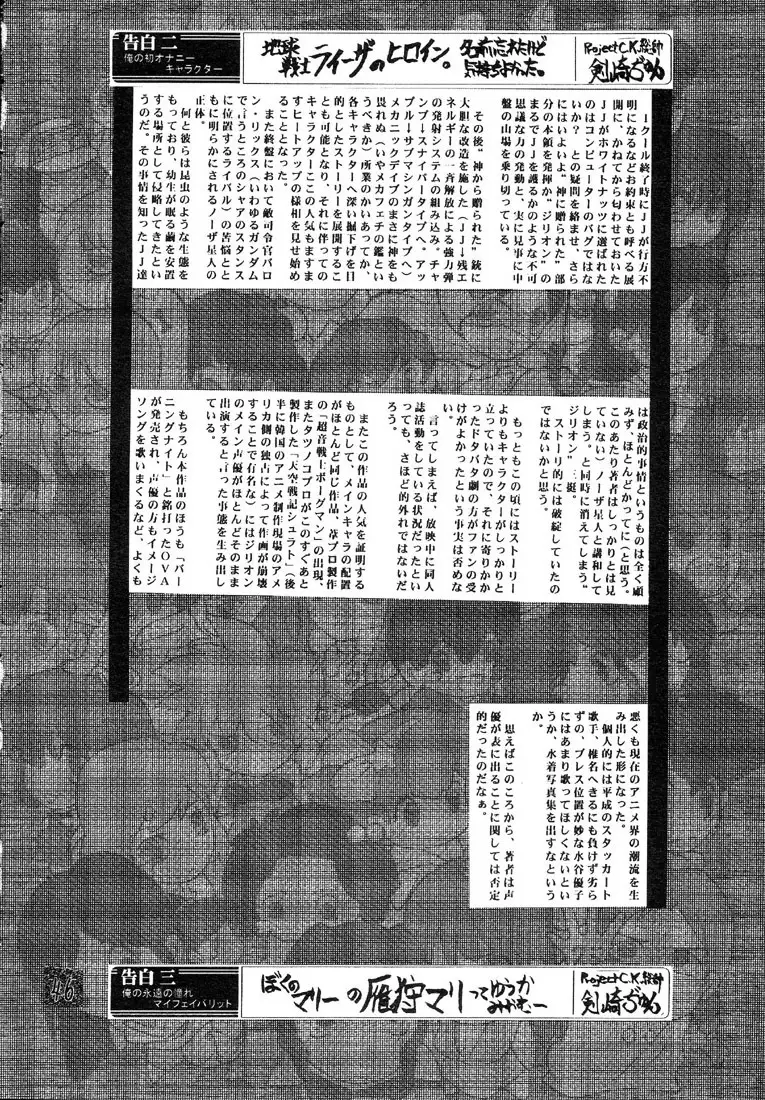 告白 二
俺の初オナニー
キャラクター
地球
戦士ライーザのヒロイン。
名前忘れたけど
気持ちよかった。
Project C.K.総帥
剣崎
１クール終了時にＪＪが行方不
明になるなどお約束とも呼べる展
開に、かねてから匂わせておいた
ＪＪがホワイトナッツに選ばれた
のはコンピューターのバグではな
いか？　との疑問を絡ませ、さら
にはいよいよ“神に贈られた”部
分の本領を発揮か“ジリオン”の
まるでＪＪを護るかのような不可
思議な力の発動と、実に見事に中
盤の山場を乗り切っている。
その後、神から贈られた“銃に
大胆な改造を施した（ＪＪ残エ
ネルギーの一斉解放による強力弾
の発射システムの組み込み。チャ
ンプ→スナイパータイプへ、アッ
プル→サブマシンガンタイプへ）
メカニックデイブのまさに神をも
畏れぬ（いやメカフェチの鑑とい
うべきか）所業のかいあってか、
各キャラクターへ深い掘下げを目
的としたストーリーを展開するこ
とも可能となり、それに伴っての
キャラクターここの人気もますま
すヒートアップの様相を見せ始め
ることとなった。
また終盤において敵司令官バロ
ン・リックス（いわゆるガンダム
で言うところのシャアのスタンス
に位置するライバル）の苦悩とと
もに明らかにされるノーザ星人の
正体。
何と彼らは昆虫のような生態を
もっており、幼生が眠る繭を安置
する場所として侵略してきたとい
うのだ。その事情を知ったＪＪ達
は政治的事情というものは全く顧
みず、ほとんどかってに（と思う。
このあたり著者はしっかりとは見
ていない）ノーザ星人と講和して
しまう。と同時に消えてしまう“
ジリオン”三挺。
ストーリ的には破綻していたの
ではないかと思う。
もっともこの頃にはストーリー
よりもキャラクターがしっかりと
立っていたので、それに寄りかか
ったドタバタ劇の方がファンの受
けがよかったという事実は否めな
い。
言ってしまえば、放映中に同人
誌活動をしている状況だったとい
っても、さほど的外れではないだ
ろう。
またこの作品の人気を証明する
ものとして、メインキャラの配置
がほとんど同じ作品、葦プロ製作
の「超音戦士ボーグマン」の出現、
またタツノコプロがこのすぐあと
製作した「天空戦記シュラト」（後
半に韓国のアニメ制作現場のアメ
リカ側の独占によって作画が崩壊
することで有名な）にはジリオン
のメイン声優がほとんどそのまま
出演すると言った事態を生み出し
ている。
もちろん本作品のほうも「バー
ニングナイト」と銘打ったＯＶＡ
が発売され、声優の方もイメージ
ソングを歌いまくるなど、よくも
悪くも現在のアニメ界の潮流を生
み出した形になった。
個人的には平成のスタッカート
歌手、椎名へきるにも負けず劣ら
ずの、ブレス位置が妙な水谷優子
にはあまり歌ってほしくないとい
うか、水着写真集を出すなという
か。
思えばこのころから、著者は声
優が表に出ることに関しては否定
的だったのだなぁ。
46
告白 三
俺の永遠の憧れ
マイフェイバリット
ぼくの
マリーの雁狩マリってゆうか
みかむー
Project C.K.総帥
剣崎